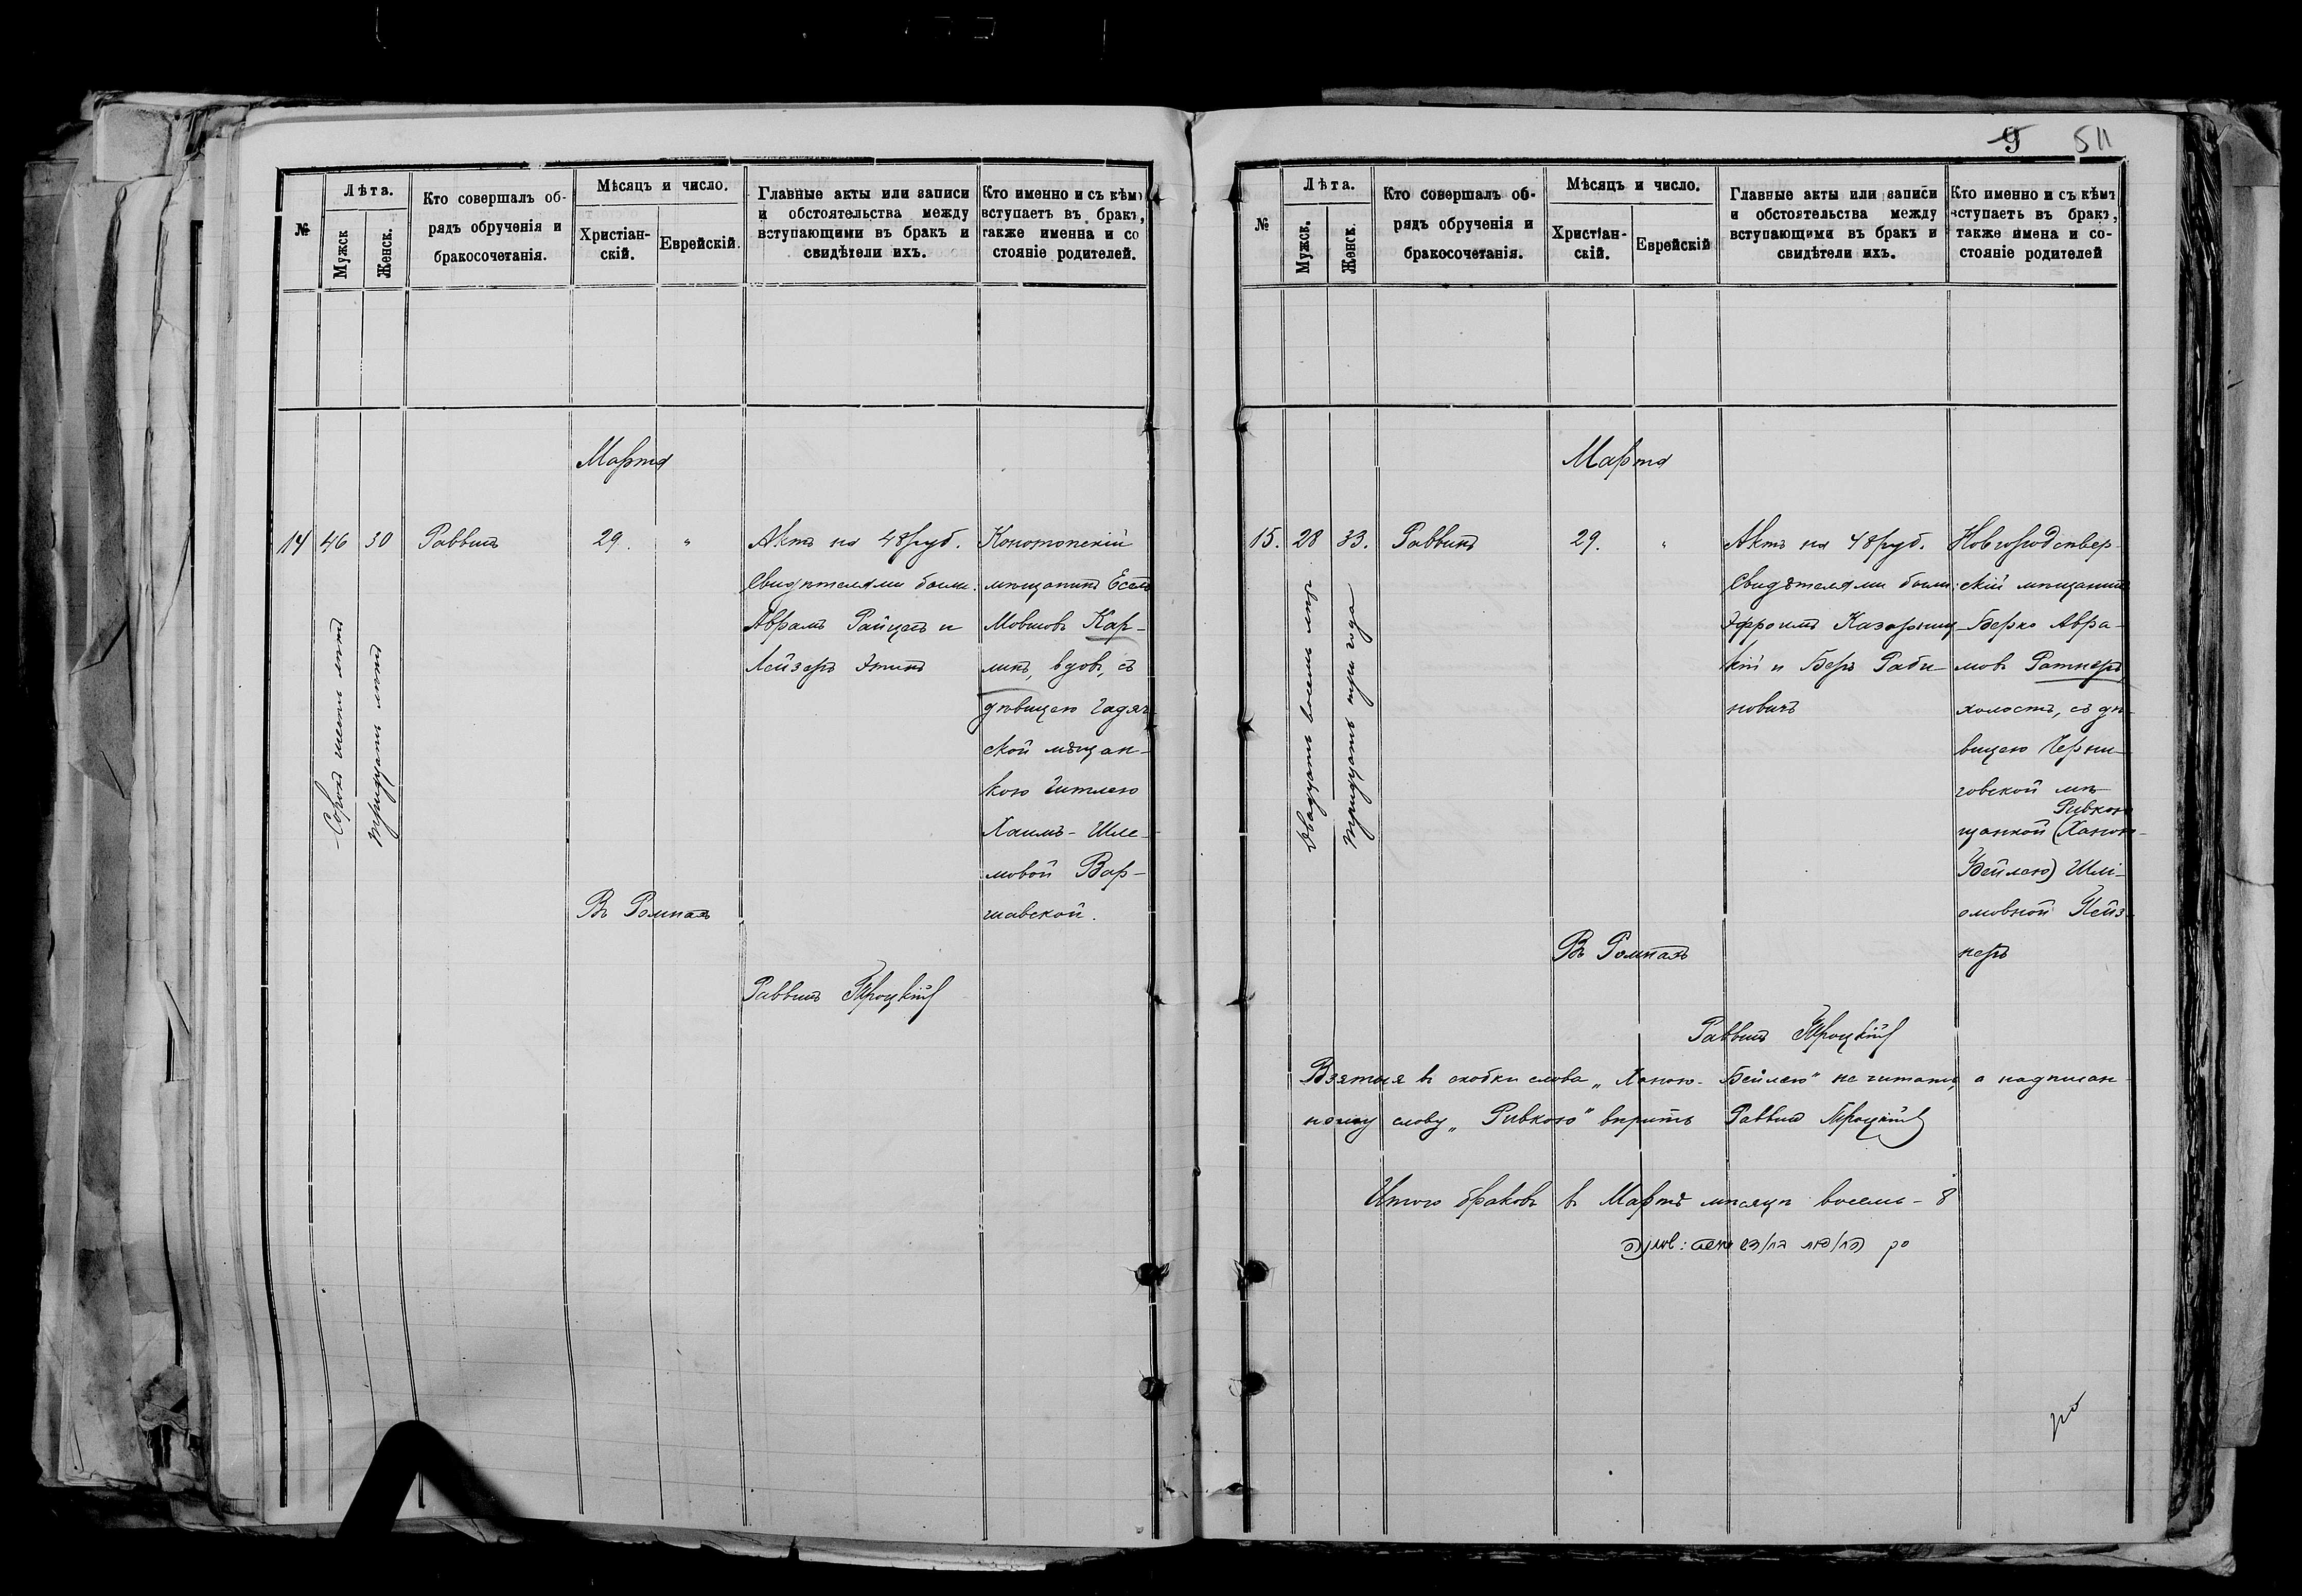 №
Лѣта.
Мужск
Женск.
Кто совершалъ об-
рядъ обрученія и
бракосочетанія.
Мѣсяцъ и число.
Христіан-
скій.
Еврейскій.
Главные акты или записи
и обстоятельства между
вступающими въ бракъ и
свидѣтели ихъ.
Кто именно и съ кѣмъ
вступаетъ въ бракъ,
также имена и со
стояніе родителей.
Марта
14
46
30
Сорокъ шесть лѣтъ
тридцать лѣтъ
Раввинъ
29.
"
Актъ на 48 руб.
Свидѣтелями были:
Аврамъ Райцесъ и
Лейзеръ Этинъ
Конотопскій
мѣщанинъ Есель
Мовшовъ Кар-
линъ, вдов., съ
дѣвицею Гадяч-
ской мѣщан-
кою Гитлею
Хаимъ-Шле-
мовой Вар-
шавской.
Въ Ромнахъ
Раввинъ Троцкій
9 511
№
Лѣта.
Мужск.
Женск.
Кто совершалъ об-
рядъ обрученія и
бракосочетанія.
Мѣсяцъ и число.
Христіан-
скій.
Еврейскій
Главные акты или записи
и обстоятельства между
вступающими въ бракъ и
свидѣтели ихъ.
Кто именно и съ кѣмъ
вступаетъ въ бракъ,
также имена и со-
стояніе родителей
Марта
15.
28
33.
Двадцать восемь лѣтъ
тридцать три года
Раввинъ
29.
"
Актъ на 48 руб.
Свидѣтелями были:
Эфроимъ Казарниц
кій и Беръ Раби-
новичъ
Новгородсѣвер-
скій мѣщанинъ
Берко Авра-
мовъ Ратнеръ,
холостъ, съ дѣ-
вицею Черни-
говской мѣ-
Ривкою
щанкой (Ханою-
Бейлею) Шлі-
омовной Пейз-
неръ
Въ Ромнахъ
Раввинъ Троцкій
Взятыя въ скобки слова „Ханою-Бейлею" не читать, а надписан-
ному слову „Ривкою" вѣрить Раввинъ Троцкій
Итого браковъ въ Мартѣ мѣсяцѣ восемь - 8